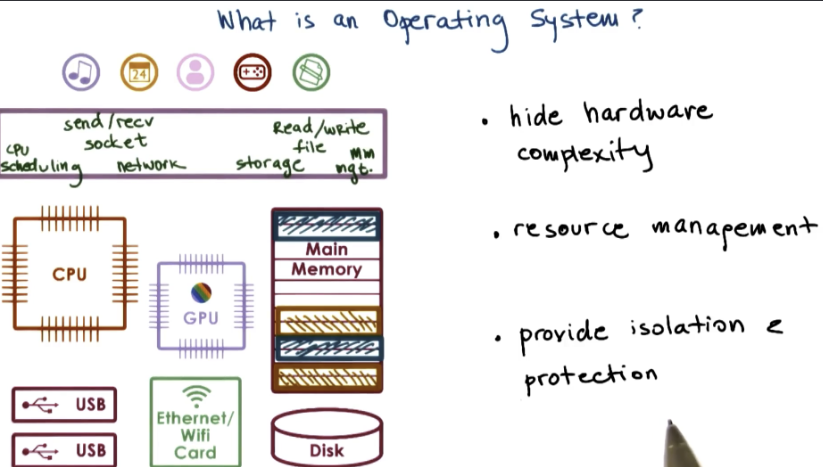 What is an Operating System?
24
send/recv
socket
Read/write
file
CPU
scheduling
network
storage
mm
mgt.
CPU
GPU
Main
Memory
USB
USB
Ethernet/
Wifi
Card
Disk
• hide hardware
complexity
• resource management
• provide isolation &
protection